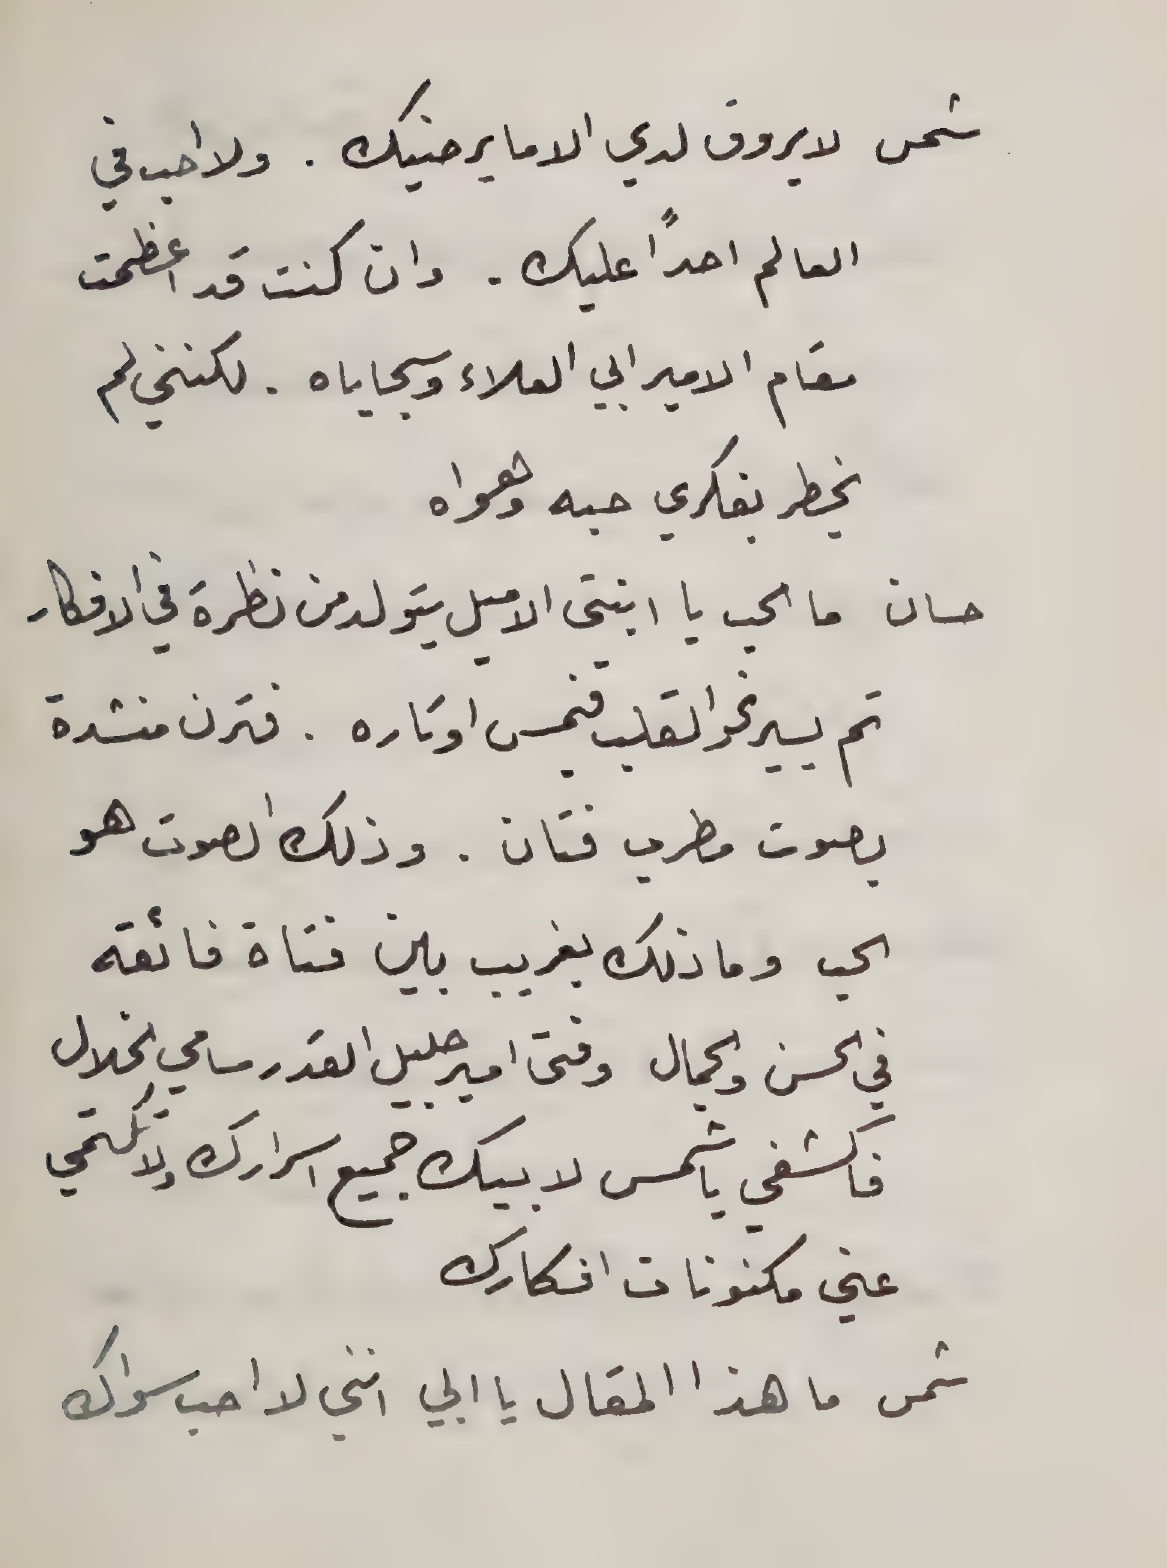 شمس لا يروق لدي الا ما يرضيك . ولا احب في
العالم احدًا عليك . وان كنت قد اعظمت
مقام الامير ابي العلاء وسجاياه . لكنني لم
يخطر بفكري حبه وهواه
حسان ما الحب يا ابنتي الا ميل يتولد من نظرة في الافكار
ثم يسير نحو القلب فيمس اوتاره . فترن منشدة
بصوت مطرب فتان . وذلك الصوت هو
الحب وما ذلك بغريب بين فتاة فائقه
في الحسن والجمال وفتى امير جليل القدر سامي الخلال
فاكشفي يا شمس لابيك جميع اسرارك ولا تكتمي
عني مكنونات افكارك
شمس ما هذا المقال يا ابي انني لا احب سواك